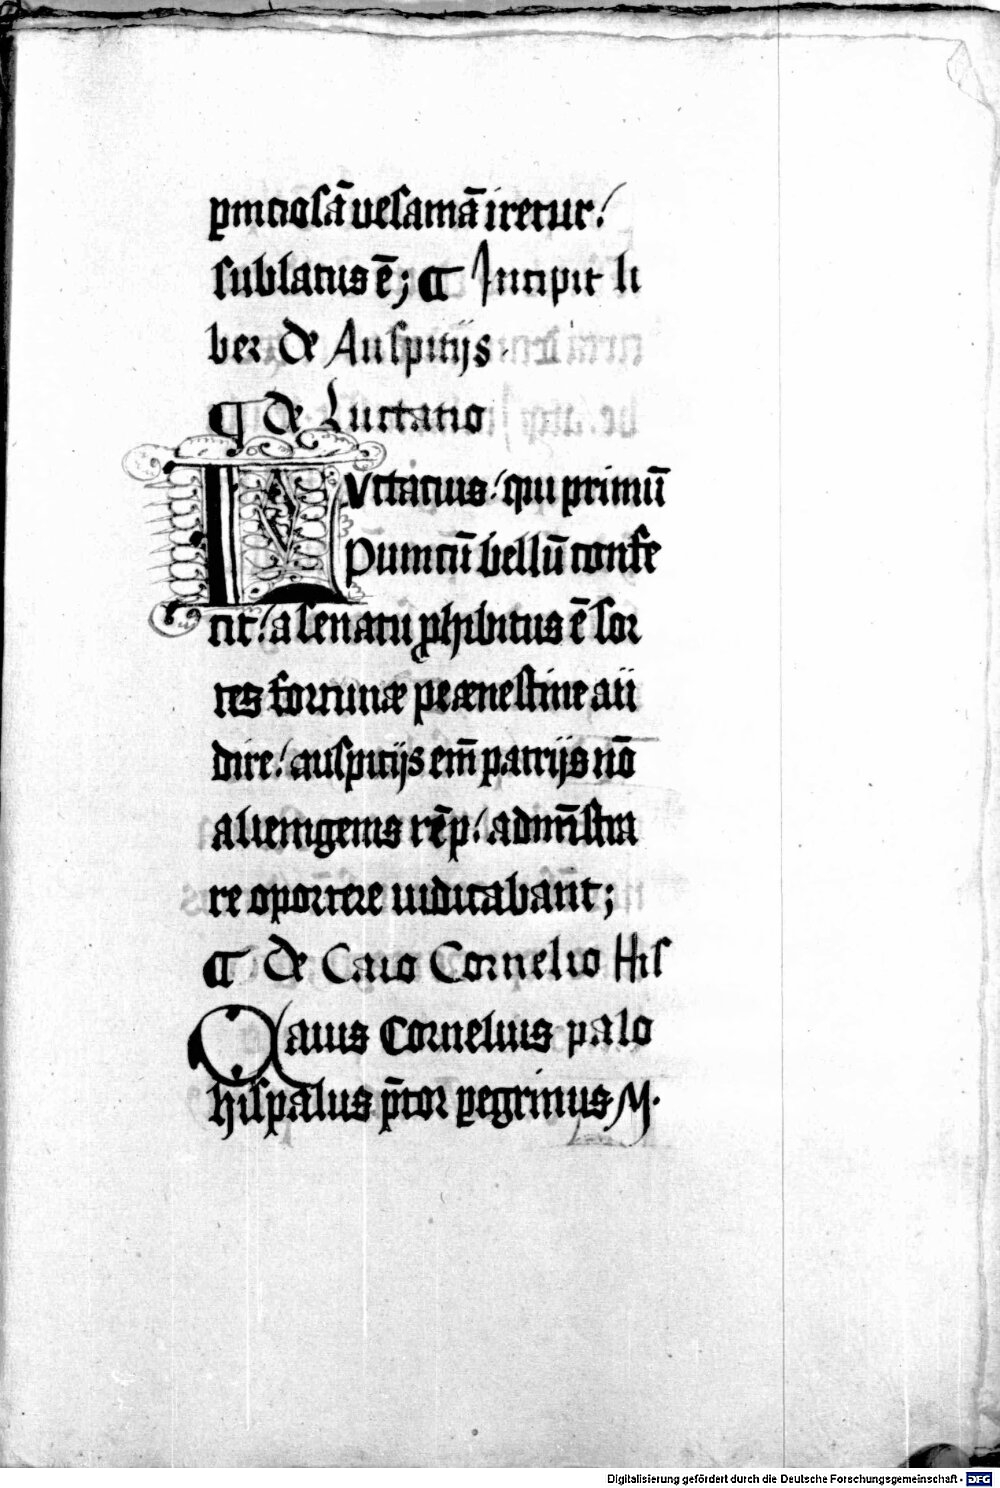 ꝑnitiosã uesamã iretur /
sublatus ē; ¶ Incipit li
ber de Auspitijs ·
¶ de Luctatio
Luctatius / qui primū
Punicū bellū confe
cit / a senatu ꝓhibitus ē sor
tes fortunæ peænestine au
dire / auspitijs em̄ patrijs nō
alienigenis rēp / adminīstra
re oportere iudicabant;
¶ de Caio Cornelio His
Caius Cornelius palo
hispalus p̄tor ꝑegrinus M·
Digitalisierung gefördert durch die Deutsche Forschungsgemeinschaft - DFG